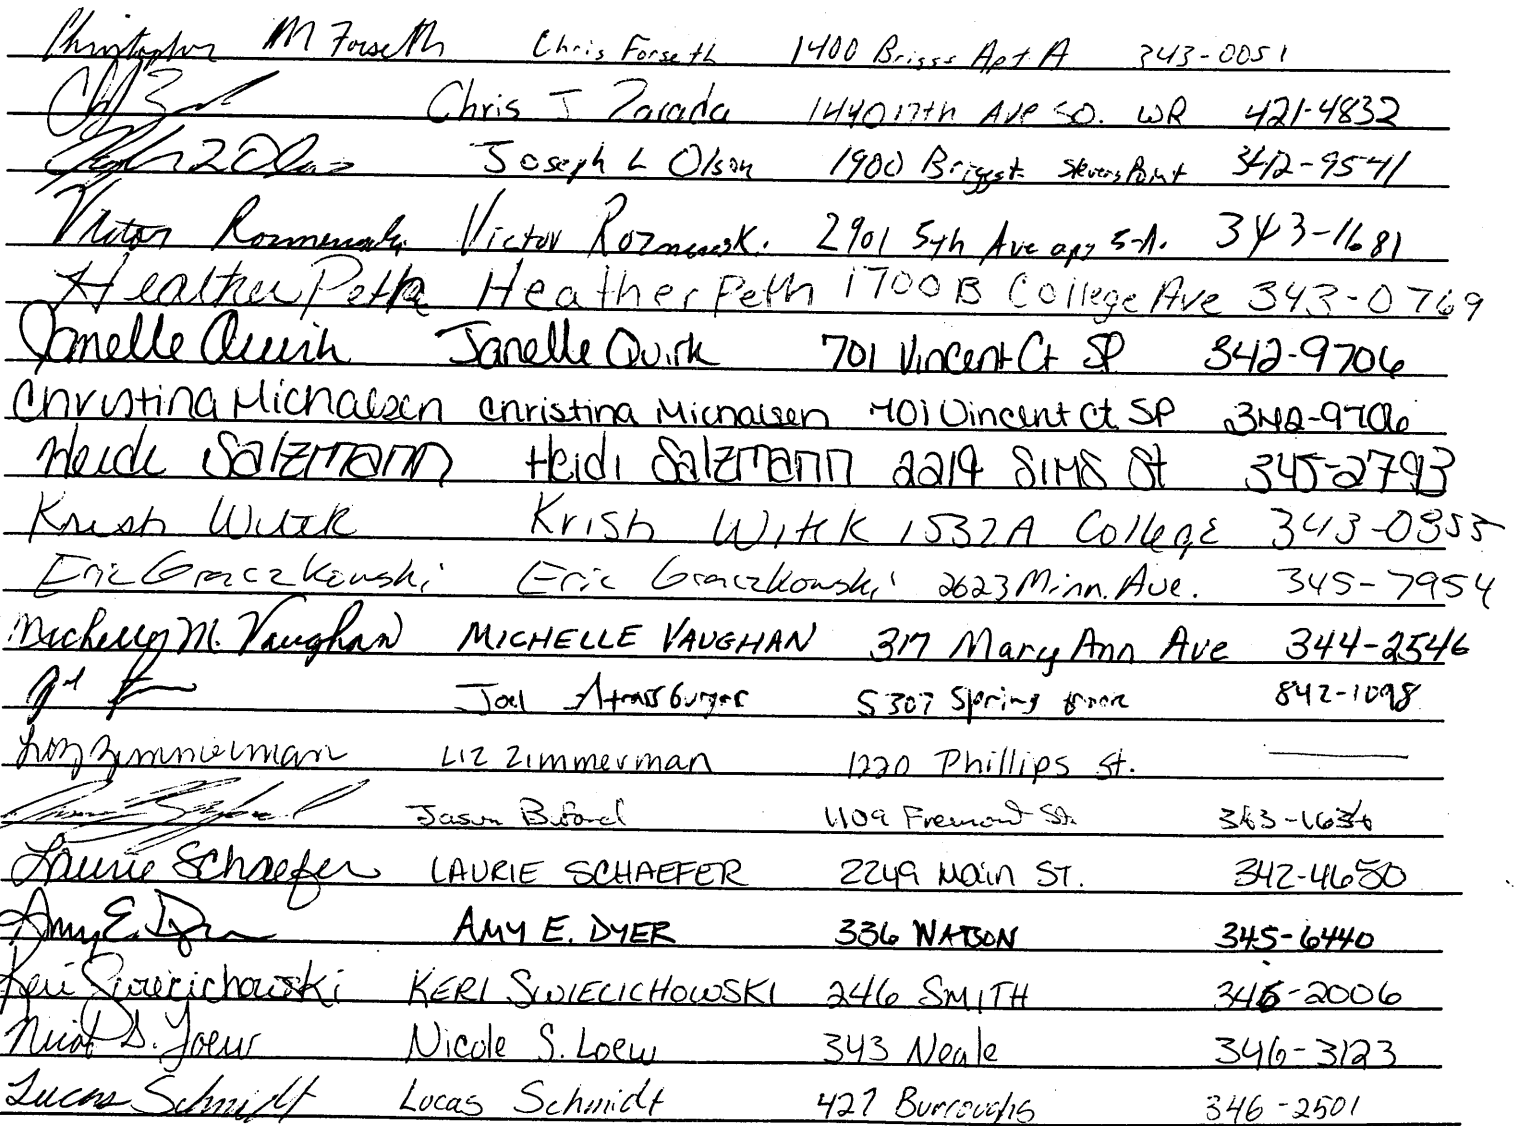 Christopher M Forseth Chris Forseth 1400 Briggs Apt A 343-0051
Chris J Zarada 1440 17th Ave SO. WR 421-4832
Joseph L Olson 1900 Briggs st. Stevens Point 342-9541
Victor Victor 2901 5th Ave 343-1681
Heather Peth Heather Peth 1700B College Ave 343-0769
Janelle Quirk Janelle Quirk 701 Vincent Ct SP 342-9706
Christina Michalsen Christina Michalsen 701 Vincent Ct. SP 342-9706
Heidi Salzmann Heidi Salzmann 2214 SIMS St 345-2793
Krish Wittk Krish Wittk 1532A College 343-0355
Eric Graczkowski Eric Graczkowski 2623 Minn. Ave. 345-7954
M. Vaughan MICHELLE VAUGHAN 317 Mary Ann Ave 344-2546
Joel Strassburger S307 Spring 842-1098
Liz Zimmerman LIZ Zimmerman 1220 Phillips St.
Jason 1109 Fremont St.
Laurie Schaefer LAURIE SCHAEFER 2249 Main ST. 342-4650
Amy E. Dyer AMY E. DYER 336 WATSON 345-6440
Keri Swiecichowski KERI SWIECICHOWSKI 246 SMITH 346-2006
Nicole S. Loew Nicole S. Loew 343 Neale 346-3123
Lucas Schmidt Lucas Schmidt 427 Burroughs 346-2501